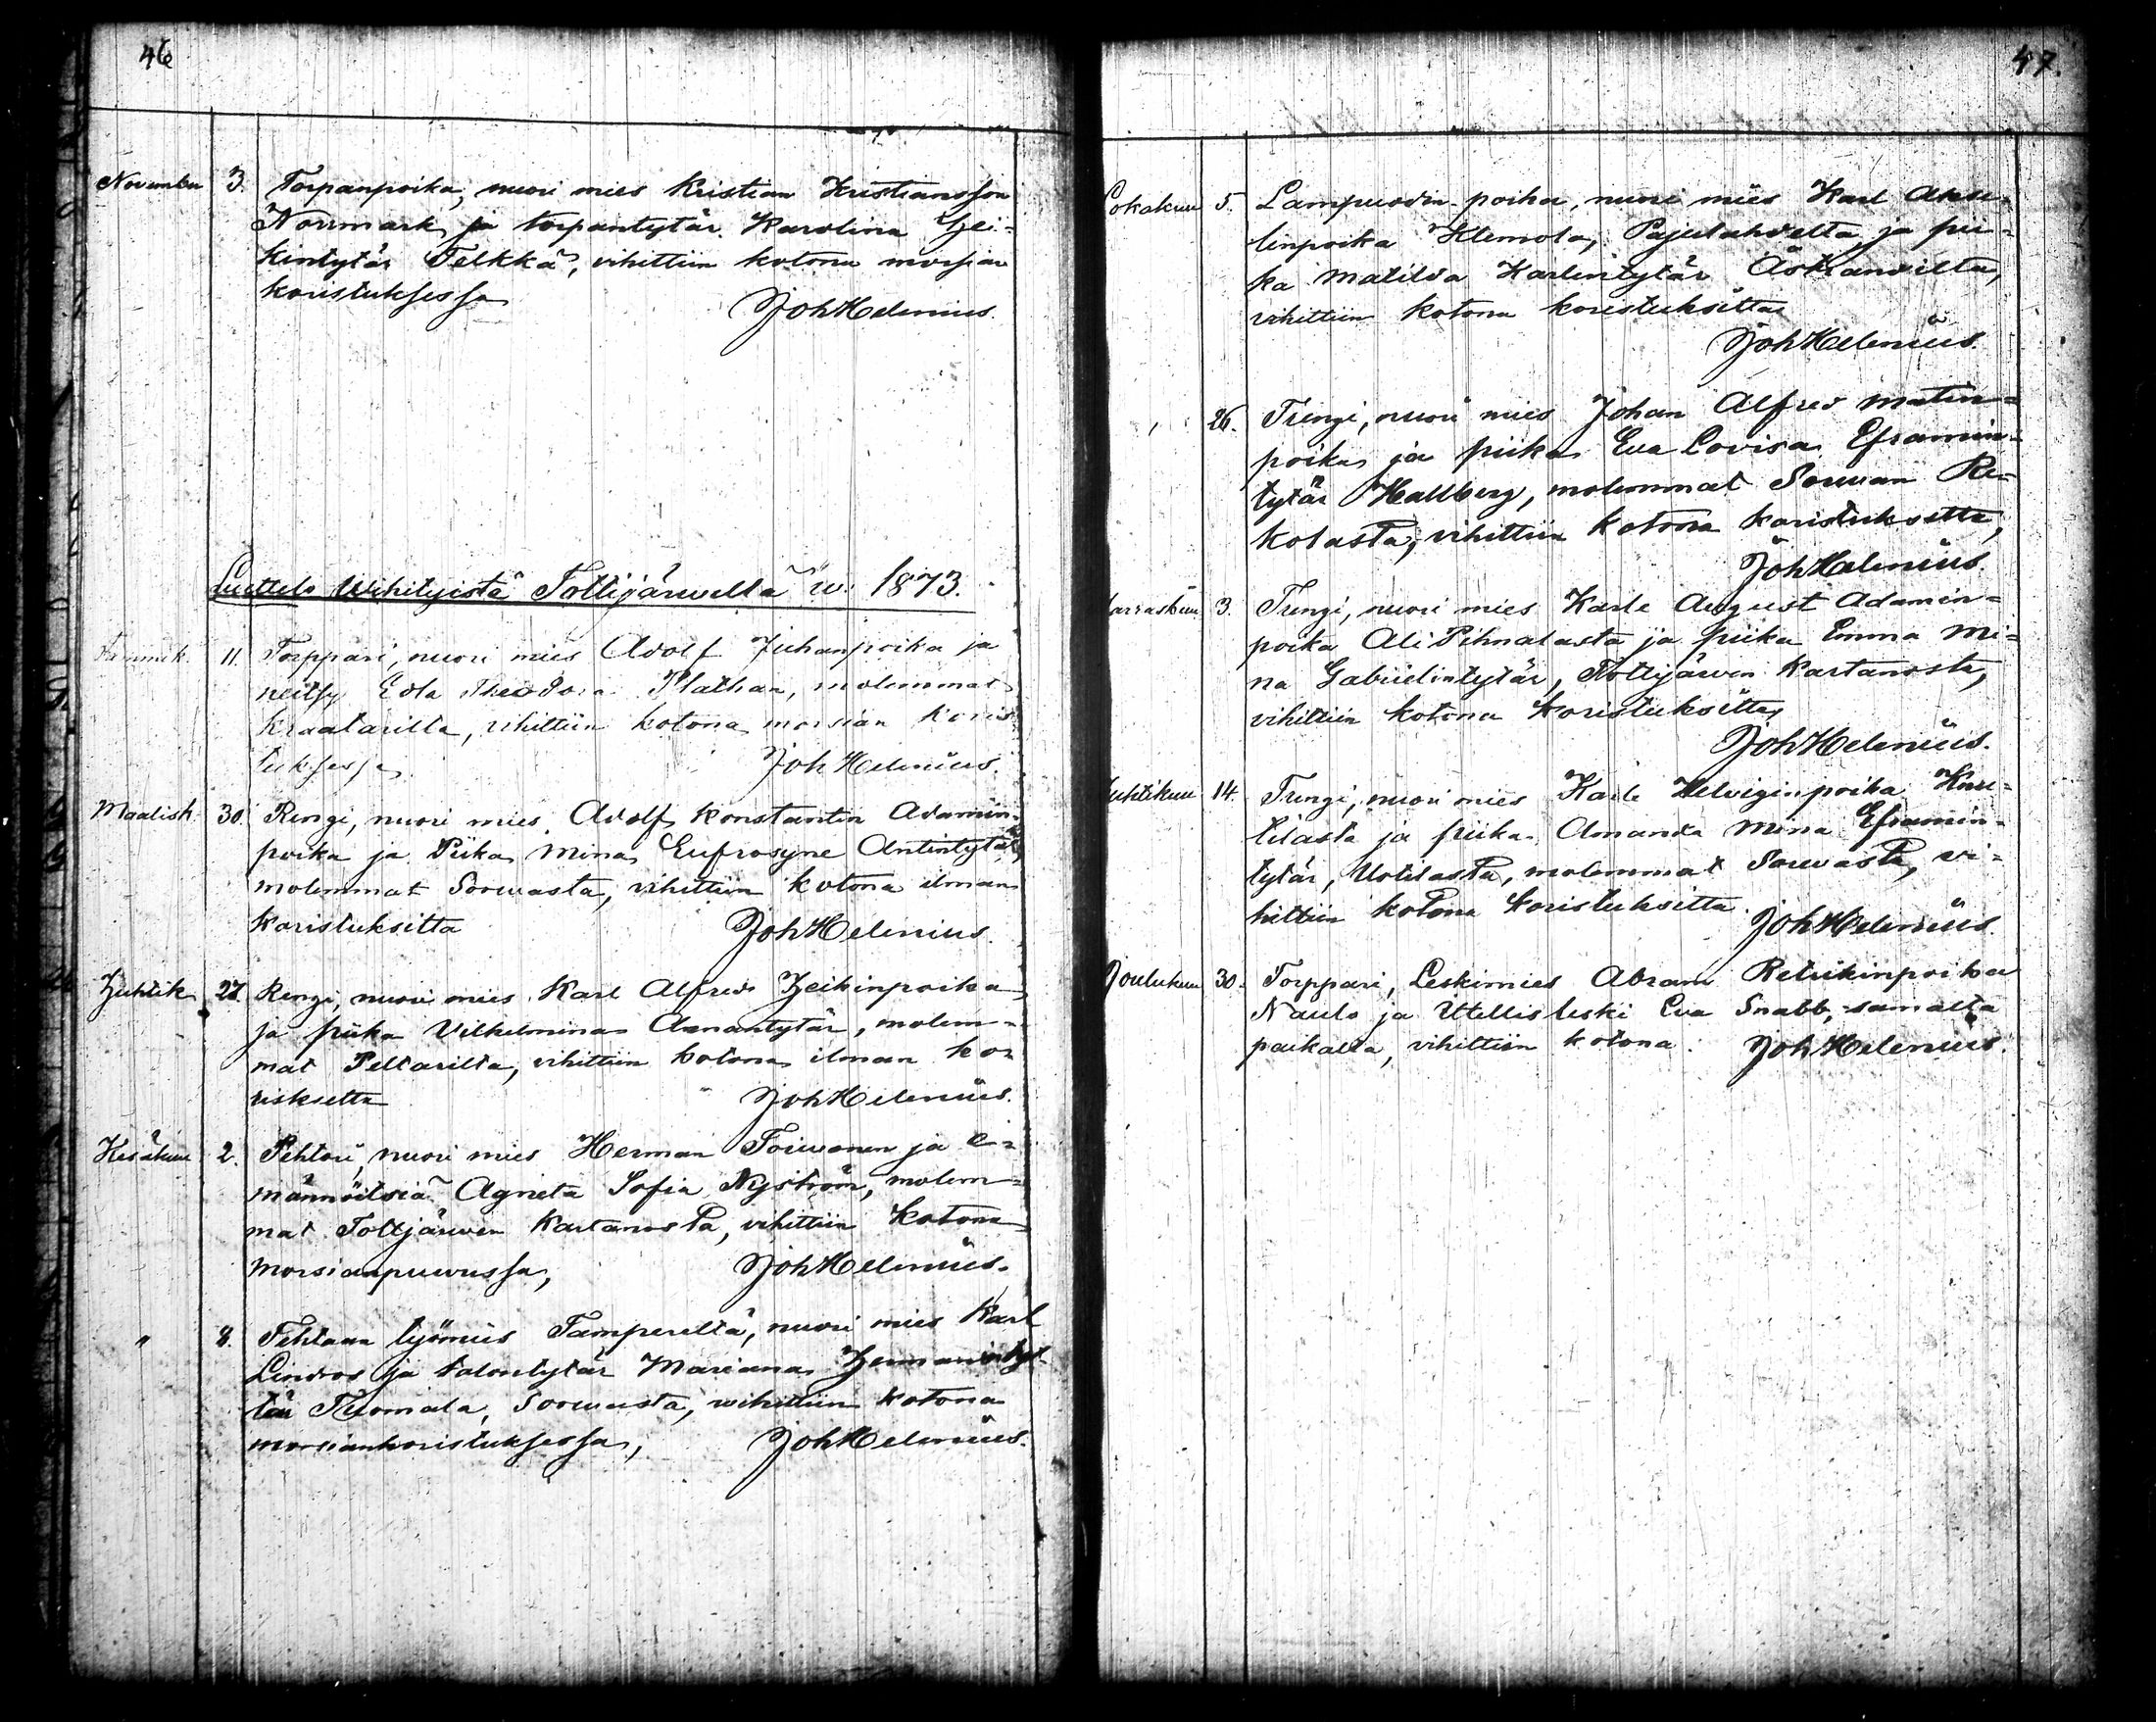 46
November 3. Torpanpoika, nuori mies Kristian Kristiansson
Norrmark, ja torpantytär Karolina Hei-
kintytär Telkkä, vihittiin kotona morsian
koristuksessa JohHelenius.
Luettelo Wihityistä Tottijärveltä w. 1873.
Tammik. 11. Torppari, nuori mies Adolf Juhanpoika ja
neitsy Edla Theodora Plathan, molemmat
Kraatarilta, vihittiin kotona morsian koris
tuksessa JohHelenius.
Maalisk. 30. Rengi, nuori mies, Adolf Konstantin Adamin-
poika ja Piika Mina Eufrosyne Antintytär,
molemmat Sorvasta, vihittiin kotona ilman
koristuksitta JohHelenius.
Huhtik. 27. Rengi, nuori mies Karl Alfred Heikinpoika
ja piika Vilhelmina Amantytär, molem-
mat Peltarilta, vihittiin kotona ilman ko-
risksetta JohHelenius.
Kesäkuu 2. Pehtori, nuori mies Herman Toivonen ja e-
männöitsiä Agneta Sofia Nyström, molem-
mat Tottjärven Kartanosta, vihittiin kotona
morsianpuvussa, JohHelenius.
" 8. Tehtaan työmies Tampereelta, nuori mies Karl
Lindros ja talontytär Mariana Hermanintyt-
tär Tuomala, Sorvasta, vihittiin kotona
morsiankoristuksessa, JohHelenius.
47.
Lokakuu 5. Lampuodin-poika, nuori mies Karl Akse-
linpoika Klemola, Pajulahdelta ja pii-
ka Matilda Karlintytär Äskandilta,
vihittiin kotona koristuksitta
JohHelenius.
" 26. Trengi, nuori mies Johan Alfred Matin-
poika ja piika Eva Lovisa Eframin-
tytär Hallberg, molemmat Sorvan Re-
kolasta, vihittiin kotona koristuksetta,
JohHelenius.
Marraskuu 3. Trengi, nuori mies Karle August Adamin-
poika AliPihnalasta ja piika Emma Mi-
na Gabrielintytär, Tottijärven Kartanosta,
vihittiin kotona koristuksitta,
JohHelenius.
Huhtikuu 14. Trengi, nuori mies Karle Helviginpoika Knu-
tilasta ja piika Amanda Mina Eframin-
tytär, Uotilasta, molemmat Sorvasta, vi-
hittiin kotona koristuksitta. JohHelenius.
Joulukuu 30. Torppari, Leskimies Abram Retrikinpoika
Naulo ja Itellisleski Eva Snabb, samalta
paikalta, vihittiin kotona. JohHelenius.